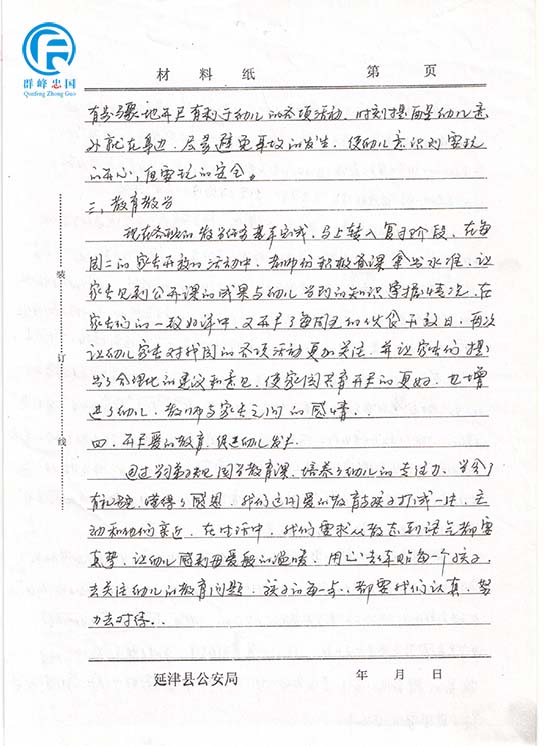 群峰忠国
Qunfeng Zhong Guo
材料纸 第 页
有步骤地开展有利于幼儿的各项活动，时刻提面是幼儿意
外就在身边，尽量避免事故的发生，使幼儿意识到要玩
的开心，但要玩的安全。
三、教育教学
现在各班的教学任务基本完成，马上转入复习阶段，在每
周二的家长开放日活动中，老师们积极备课拿出水准，让
家长见到公开课的成果与幼儿学到的知识掌握情况，在
家长们的一致好评中，又开展了每周五的伙食开放日，再次
让幼儿家长对我园的各项活动更加关注，并让家长们提
出了合理化的建议和意见，使家园共育开展的更好，也增
进了幼儿、教师与家长之间的感情。
四、开展爱的教育，促进幼儿发展
通过学习弟子规国学教育课，培养了幼儿的专注力，学会了
有礼貌，懂得了感恩，我们运用爱的教育与孩子打成一片，主
动和他们亲近，在生活中，我们要求从教态到语气都要
真挚，让幼儿感到母爱般的温暖，用心去体贴每一个孩子，
去关注幼儿的教育问题，孩子的每一点，都要我们认真、努
力去对待。
装
订
线
延津县公安局 年 月 日